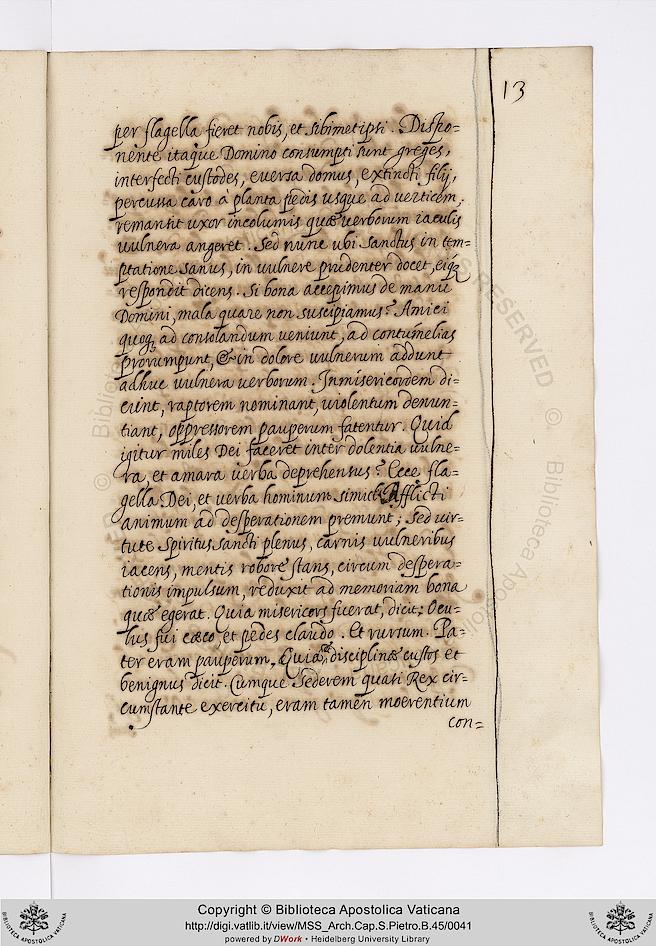 13
per flagella fieret nobis, et sibimetipsi. Dispo=
nente itaque Domino consumpti sunt greges,
interfecti custodes, eversa domus, extincti filij,
percussa caro a planta pedis usque ad verticem,
remansit uxor incolumis quæ verborum iaculis
vulnera augeret. Sed nunc ubi Sanctus in tem=
ptatione sanus, in vulnere prudenter docet, eiq;
respondit dicens. Si bona accepimus de manu
Domini, mala quare non suscipiamus? Amici
quoq; ad consolandum veniunt, ad contumelias
prorumpunt, & in dolore vulnerum addunt
adhuc vulnera verborum. Inmisericordem di=
cunt, raptorem nominant, violentum denun=
tiant, oppressorem pauperum fatentur. Quid
igitur miles Dei faceret inter dolentia vulne=
ra, et amara verba deprehensus? Ecce fla=
gella Dei, et verba hominum simul Afflicti
animum ad desperationem premunt; Sed vir=
tute Spiritus sancti plenus, carnis vulneribus
iacens, mentis robore stans, circum despera=
tionis impulsum, reduxit ad memoriam bona
quæ egerat. Quia misericors fuerat, dicit: Ocu=
lus fui cæco, et pedes claudo. Et rursum. Pa=
ter eram pauperum. Quia disciplinæ custos et
benignus dicit. Cumque Sederem quasi Rex cir=
cumstante exercitu, eram tamen moerentium
con=
© Biblioteca Apostolica Vaticana
Copyright © Biblioteca Apostolica Vaticana
http://digi.vatlib.it/view/MSS_Arch.Cap.S.Pietro.B.45/0041
powered by DWork • Heidelberg University Library
BIBLIOTECA APOSTOLICA VATICANA
BIBLIOTECA APOSTOLICA VATICANA